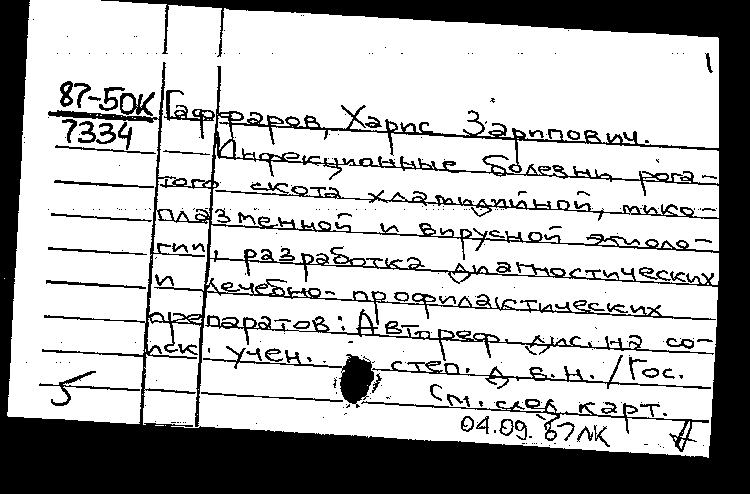 1
87-50К
7334
Гаффаров, Харис Зарипович.
Инфекционные болезни рога-
того скота хламидийной, мико-
плазменной и вирусной этиоло-
гии, разработка диагностических
и лечебно-профилактических
препаратов: Автореф. дис. на со-
иск. учен. степ. д. в. н. /Гос.
См. след. карт.
5
04.09.87